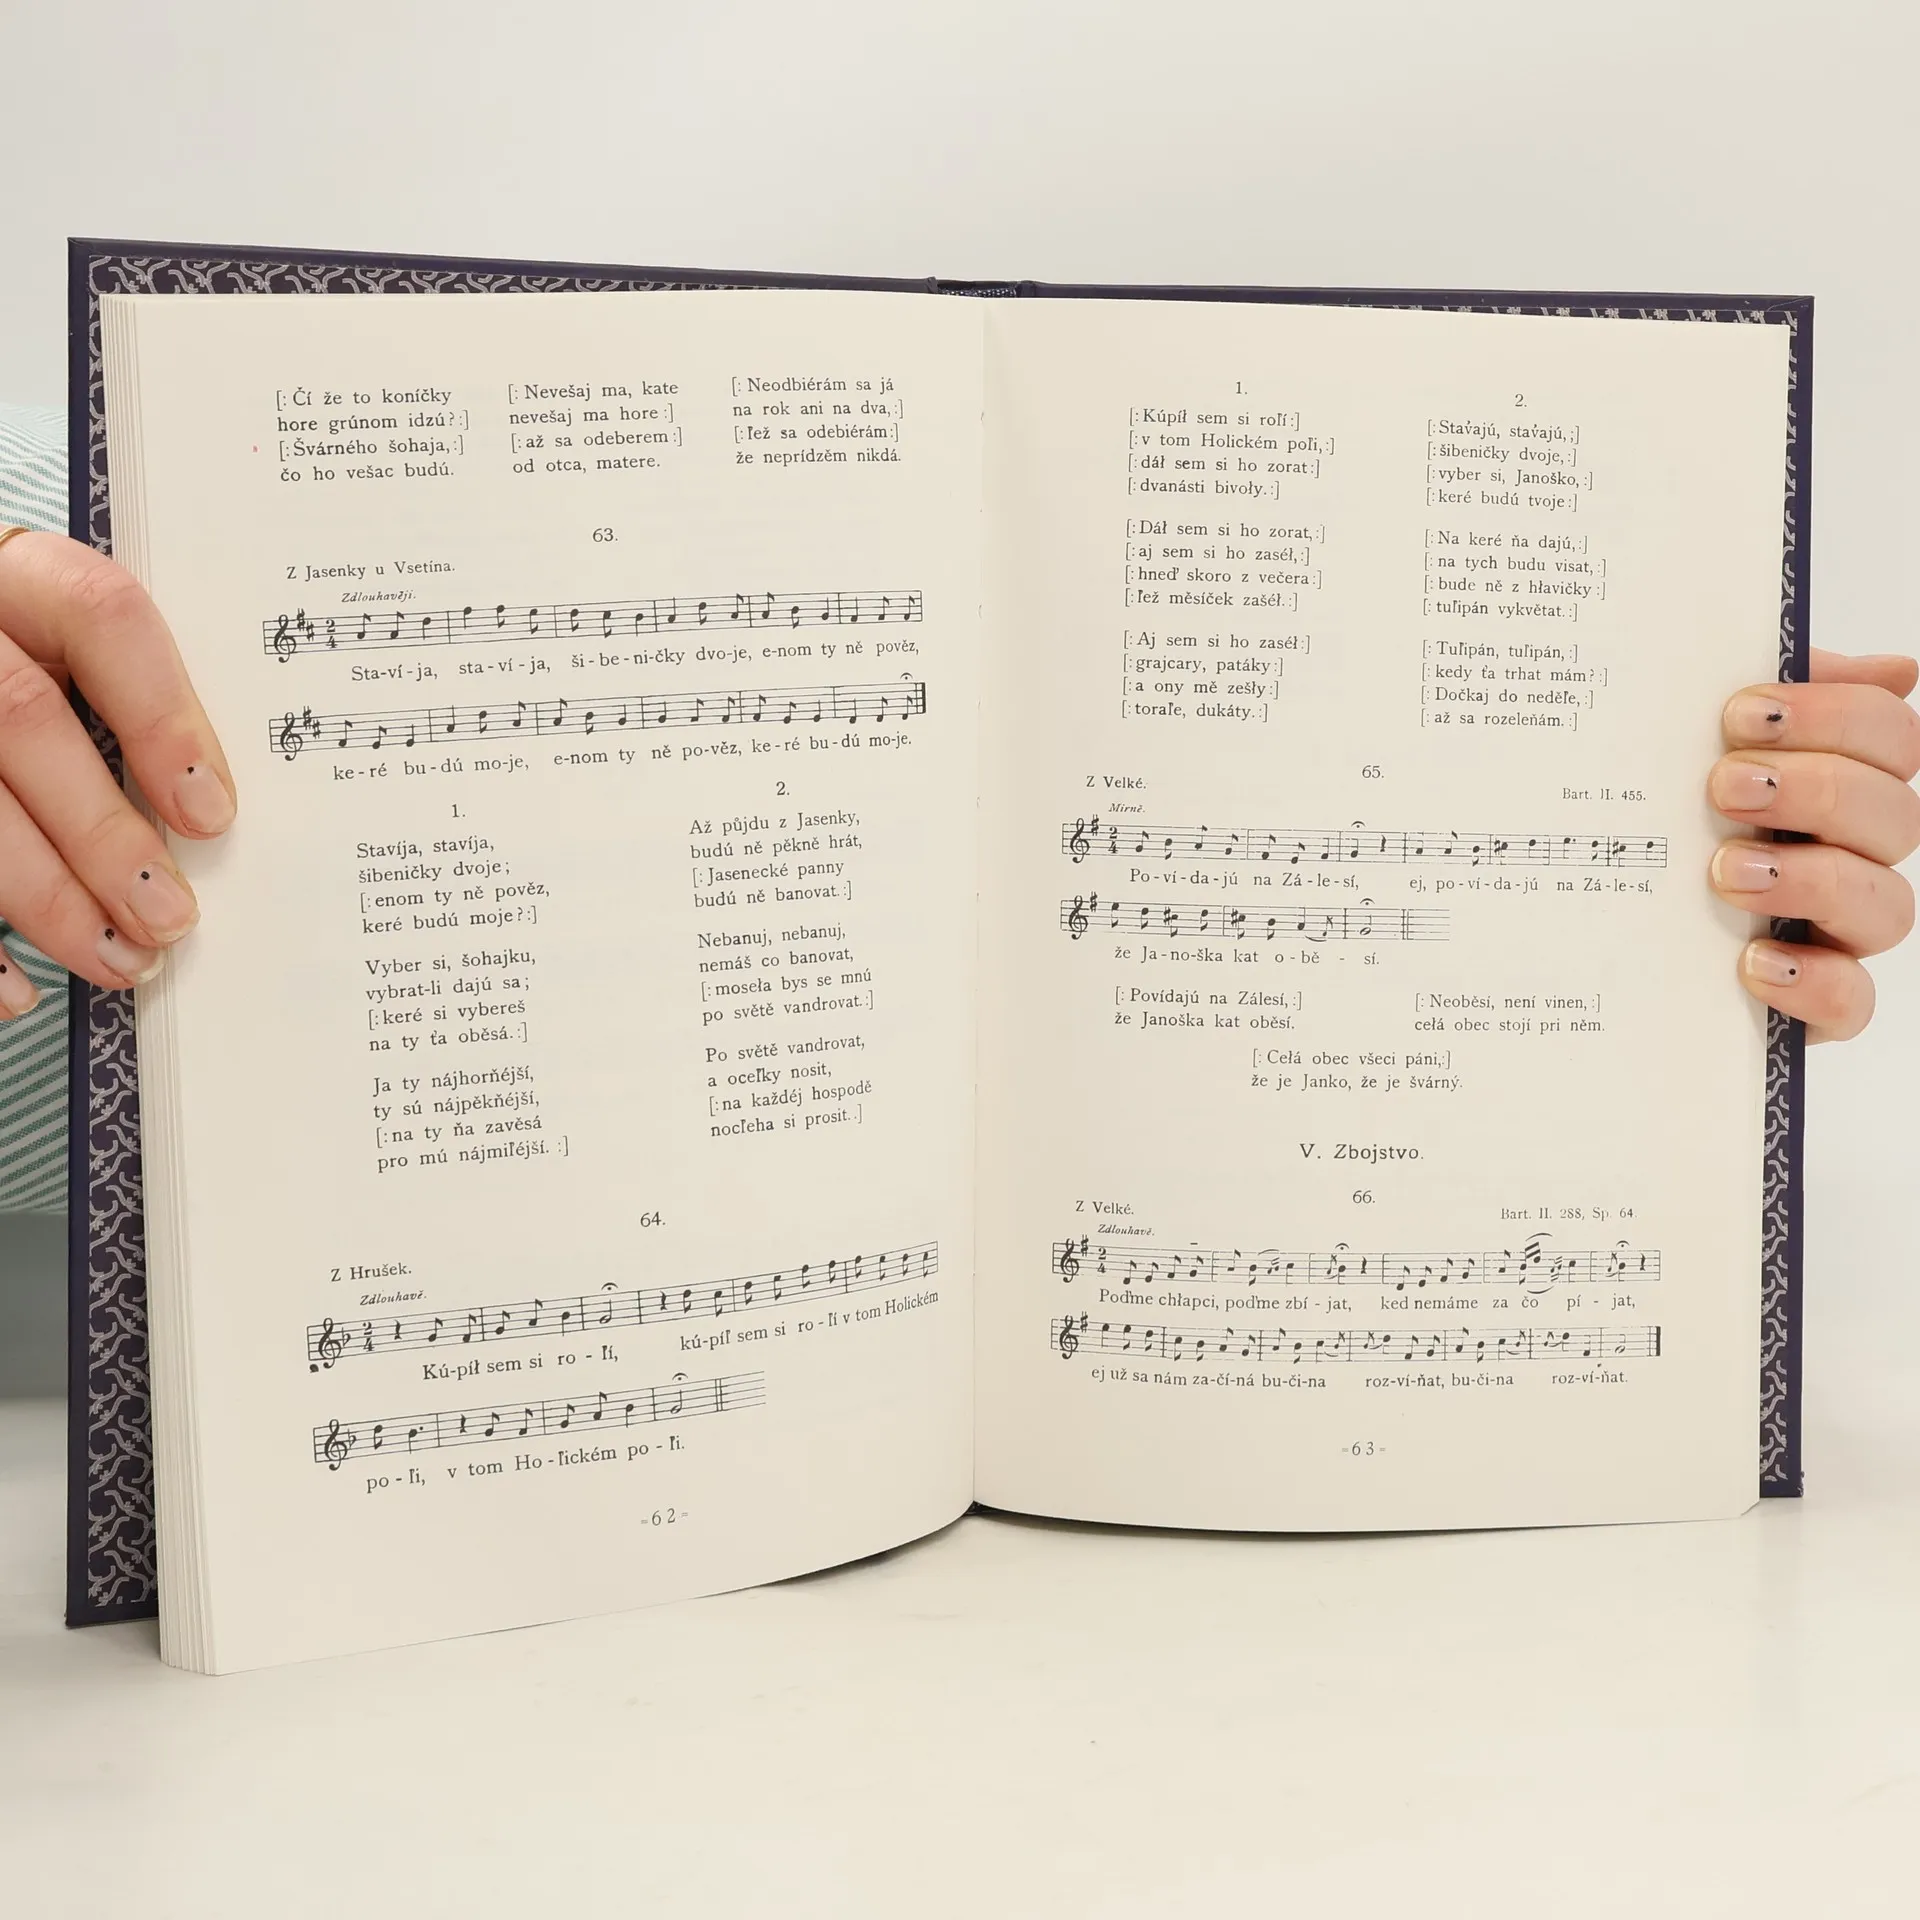 [: Čí že to koníčky
hore grúnom idzú? :]
[: Švárného šohaja, :]
čo ho vešac budú.
[: Nevešaj ma, kate
nevešaj ma hore :]
[: až sa odeberem :]
od otca, matere.
[: Neodbiérám sa já
na rok ani na dva, :]
[: ľež sa odebiérám :]
že neprídzěm nikdá.
63.
Z Jasenky u Vsetína.
Zdlouhavěji.
Sta-ví-ja, sta-ví-ja, ši-be-ni-čky dvo-je, e-nom ty ně pověz,
ke-ré bu-dú mo-je, e-nom ty ně po-věz, ke-ré bu-dú mo-je.
1.
Stavíja, stavíja,
šibeničky dvoje;
[: enom ty ně pověz,
keré budú moje? :]
Vyber si, šohajku,
vybrat-li dajú sa;
[: keré si vybereš
na ty ťa oběsá. :]
Ja ty nájhorňéjší,
ty sú nájpěkňéjší,
[: na ty ňa zavěsá
pro mú nájmiľéjší. :]
2.
Až půjdu z Jasenky,
budú ně pěkně hrát,
[: Jasenecké panny
budú ně banovat. :]
Nebanuj, nebanuj,
nemáš co banovat,
[: moseła bys se mnú
po světě vandrovat. :]
Po světě vandrovat,
a oceľky nosit,
[: na každéj hospodě
nocľeha si prosit. :]
64.
Z Hrušek.
Zdlouhavě.
Kú-píł sem si ro - ľí, kú-píľ sem si ro - ľí v tom Holickém
po - ľi, v tom Ho - ľickém po - ľi.
=62=
1.
[: Kúpíł sem si roľí :]
[: v tom Holickém poľi, :]
[: dáł sem si ho zorat :]
[: dvanásti bivoły. :]
[: Dáł sem si ho zorat, :]
[: aj sem si ho zaséł, :]
[: hneď skoro z večera :]
[: ľež měsíček zašéł. :]
[: Aj sem si ho zaséł :]
[: grajcary, patáky :]
[: a ony mě zešły :]
[: toraľe, dukáty. :]
2.
[: Stav̌ajú, stav̌ajú, ;]
[: šibeničky dvoje, :]
[: vyber si, Janoško, :]
[: keré budú tvoje :]
[: Na keré ňa dajú, :]
[: na tych budu visat, :]
[: bude ně z hłavičky :]
[: tuľipán vykvětat. :]
[: Tuľipán, tuľipán, :]
[: kedy ťa trhat mám? :]
[: Dočkaj do neděľe, :]
[: až sa rozeleňám. :]
65.
Z Velké.
Bart. II. 455.
Mírně.
Po-ví-da-jú na Zá-le-sí, ej, po-ví-da-jú na Zá-le-sí,
že Ja-no-ška kat o-bě - sí.
[: Povídajú na Zálesí, :]
že Janoška kat oběsí.
[: Neoběsí, není vinen, :]
celá obec stojí pri něm.
[: Cełá obec všeci páni, :]
že je Janko, že je švárný.
V. Zbojstvo.
66.
Z Velké.
Bart. II. 288, Sp. 64.
Zdlouhavě.
Poďme chłapci, poďme zbí - jat, ked nemáme za čo pí - jat,
ej už sa nám za-čí-ná bu-či-na roz-ví-ňat, bu-či-na roz-ví-ňat.
=63=